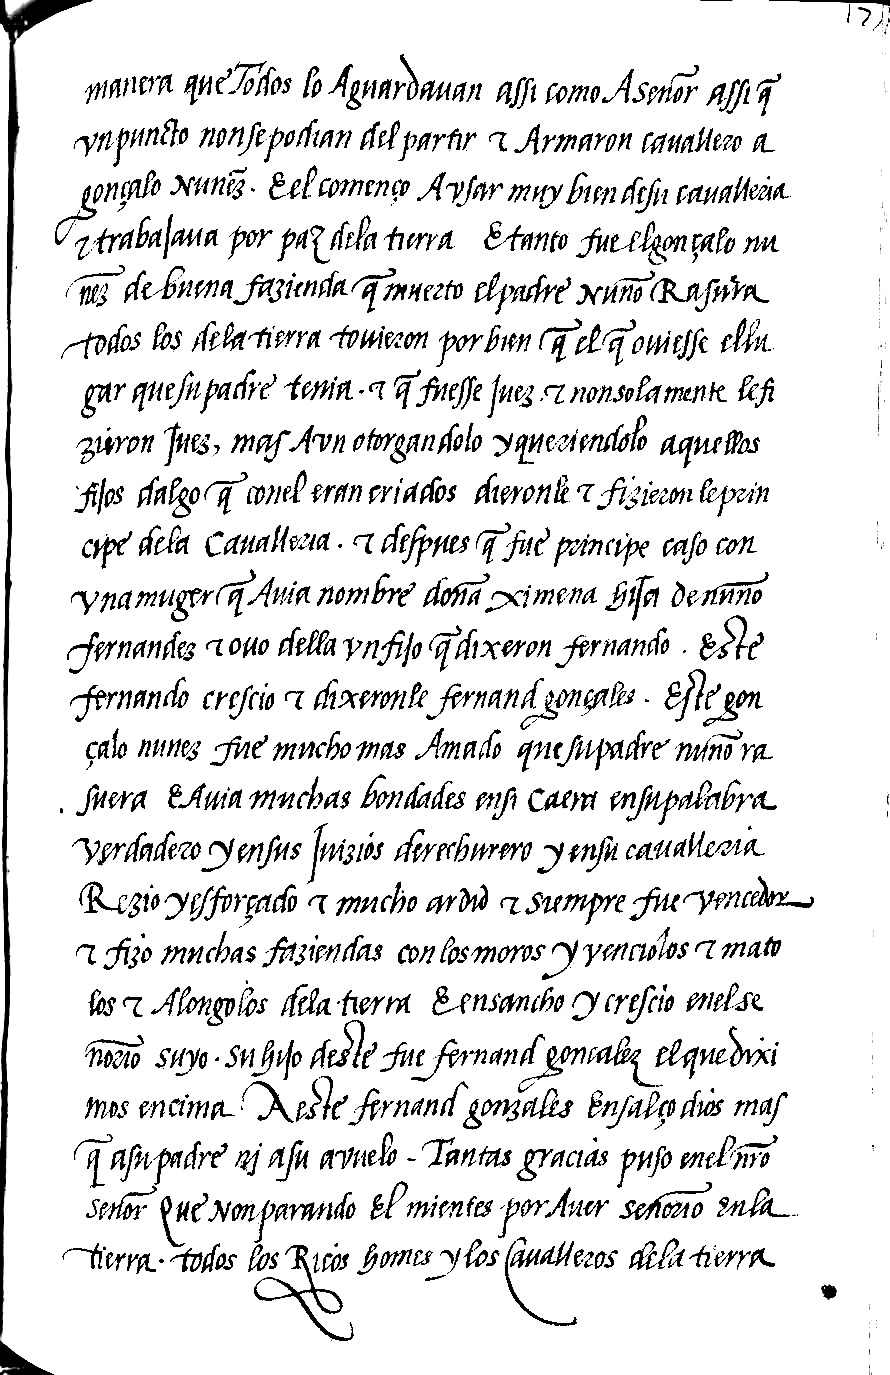 manera que Todos lo Aguardauan assi como A señor assi q̃
vn puncto non se podian del partir τ Armaron cauallero a
gonçalo nunẽz. E el començo A vsar muy bien de su caualleria
τ trabajaua por paz de la tierra E tanto fue el gonçalo nu
ñez de buena fazienda q̃ muerto el padre Nuño Rasura
todos los de la tierra touieron por bien q̃ el q̃ ouiesse el lu
gar que su padre tenia. τ q̃ fuesse Juez. τ non solamente le fi
zieron Juez, mas Avn otorgandolo y queriendolo aquellos
fijos dalgo q̃ con el eran criados dieronle τ fizieron le prin
cipe de la Caualleria. τ despues q̃ fue principe caso con
vna muger q̃ Auia nombre doña Ximena hija de nuño
fernandez τ ouo della vn fijo q̃ dixeron fernando. Este
fernando crescio τ dixeronle fernand gonçales. Este gon
çalo nunez fue mucho mas Amado que su padre nuño ra
suera E Auia muchas bondades en si Ca era en su palabra
verdadero y en sus Juizios derechurero y en su caualleria
Rezio y esforçado τ mucho ardid τ siempre fue vencedor
τ fizo muchas faziendas con los moros y venciolos τ mato
los τ Alongolos de la tierra E ensancho y crescio en el se
ñorio suyo. Su hijo deste fue fernand goncalez el que dixi
mos encima A este fernand gonzales Ensalço dios mas
q̃ a su padre nj a su avuelo - Tantas gracias puso en el nr̃o
señor Que Non parando El mientes por Auer señorio en la
tierra. todos los Ricos homes y los Caualleros de la tierra